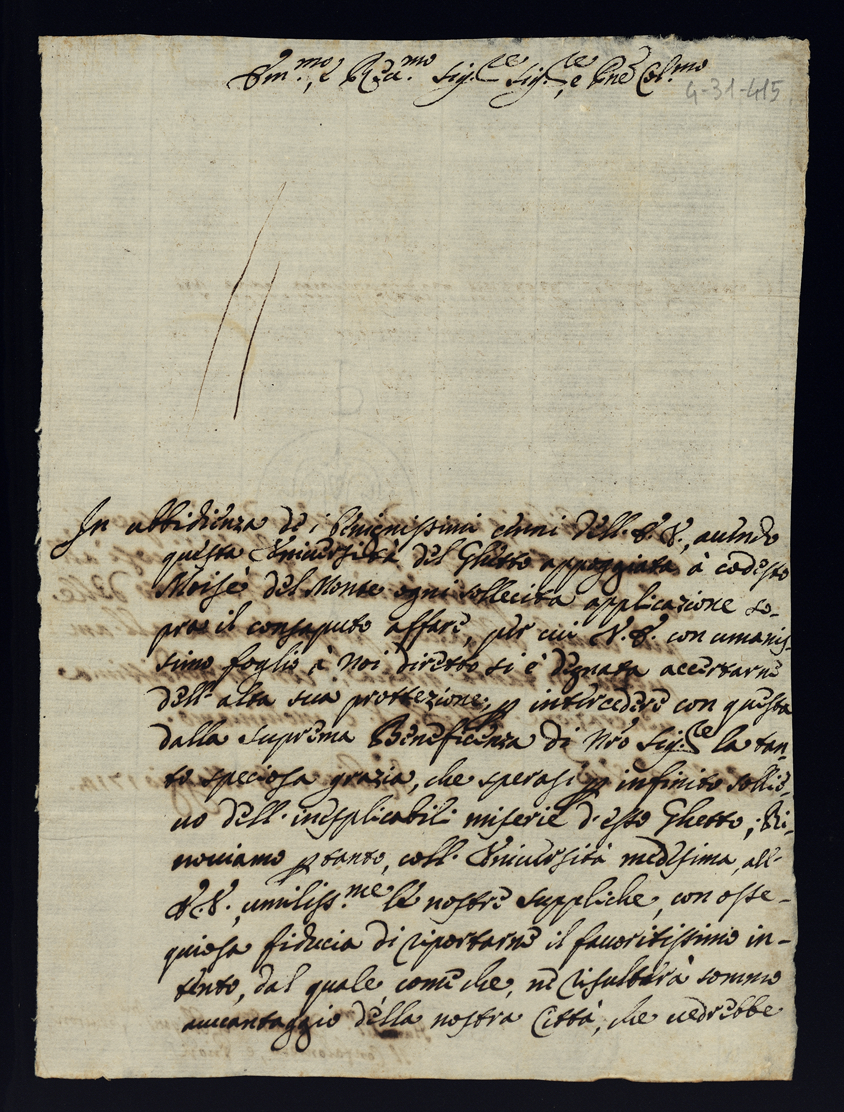 Em.mo, e R.mo Sig.re Sig.re, e Pne Col.mo
4-31-415
In ubbidienza de i benignissimi cenni dell'E.V., avendo
questa Università del Ghetto appoggiata à codesto
Moisè del Monte ogni sollecita applicazione so-
pra il consaputo affare, per cui V.E. con umanis-
simo foglio à noi diretto si è degnata accertarne
dell'alta sua protezione, p intercedere con questa
dalla suprema Beneficenza di Nro Sig.re la tan-
to speciosa grazia, che sperasi p infinito sollie-
vo dell'inesplicabili miserie d'esso Ghetto; Ri-
noviamo p tanto, coll'Università medesima, all'
E.V. umiliss.me le nostre suppliche, con osse-
quiosa fiducia di riportarne il favoritissimo in-
tento, dal quale, come che, ne risulterà sommo
avvantaggio della nostra Città, che vedrebbe